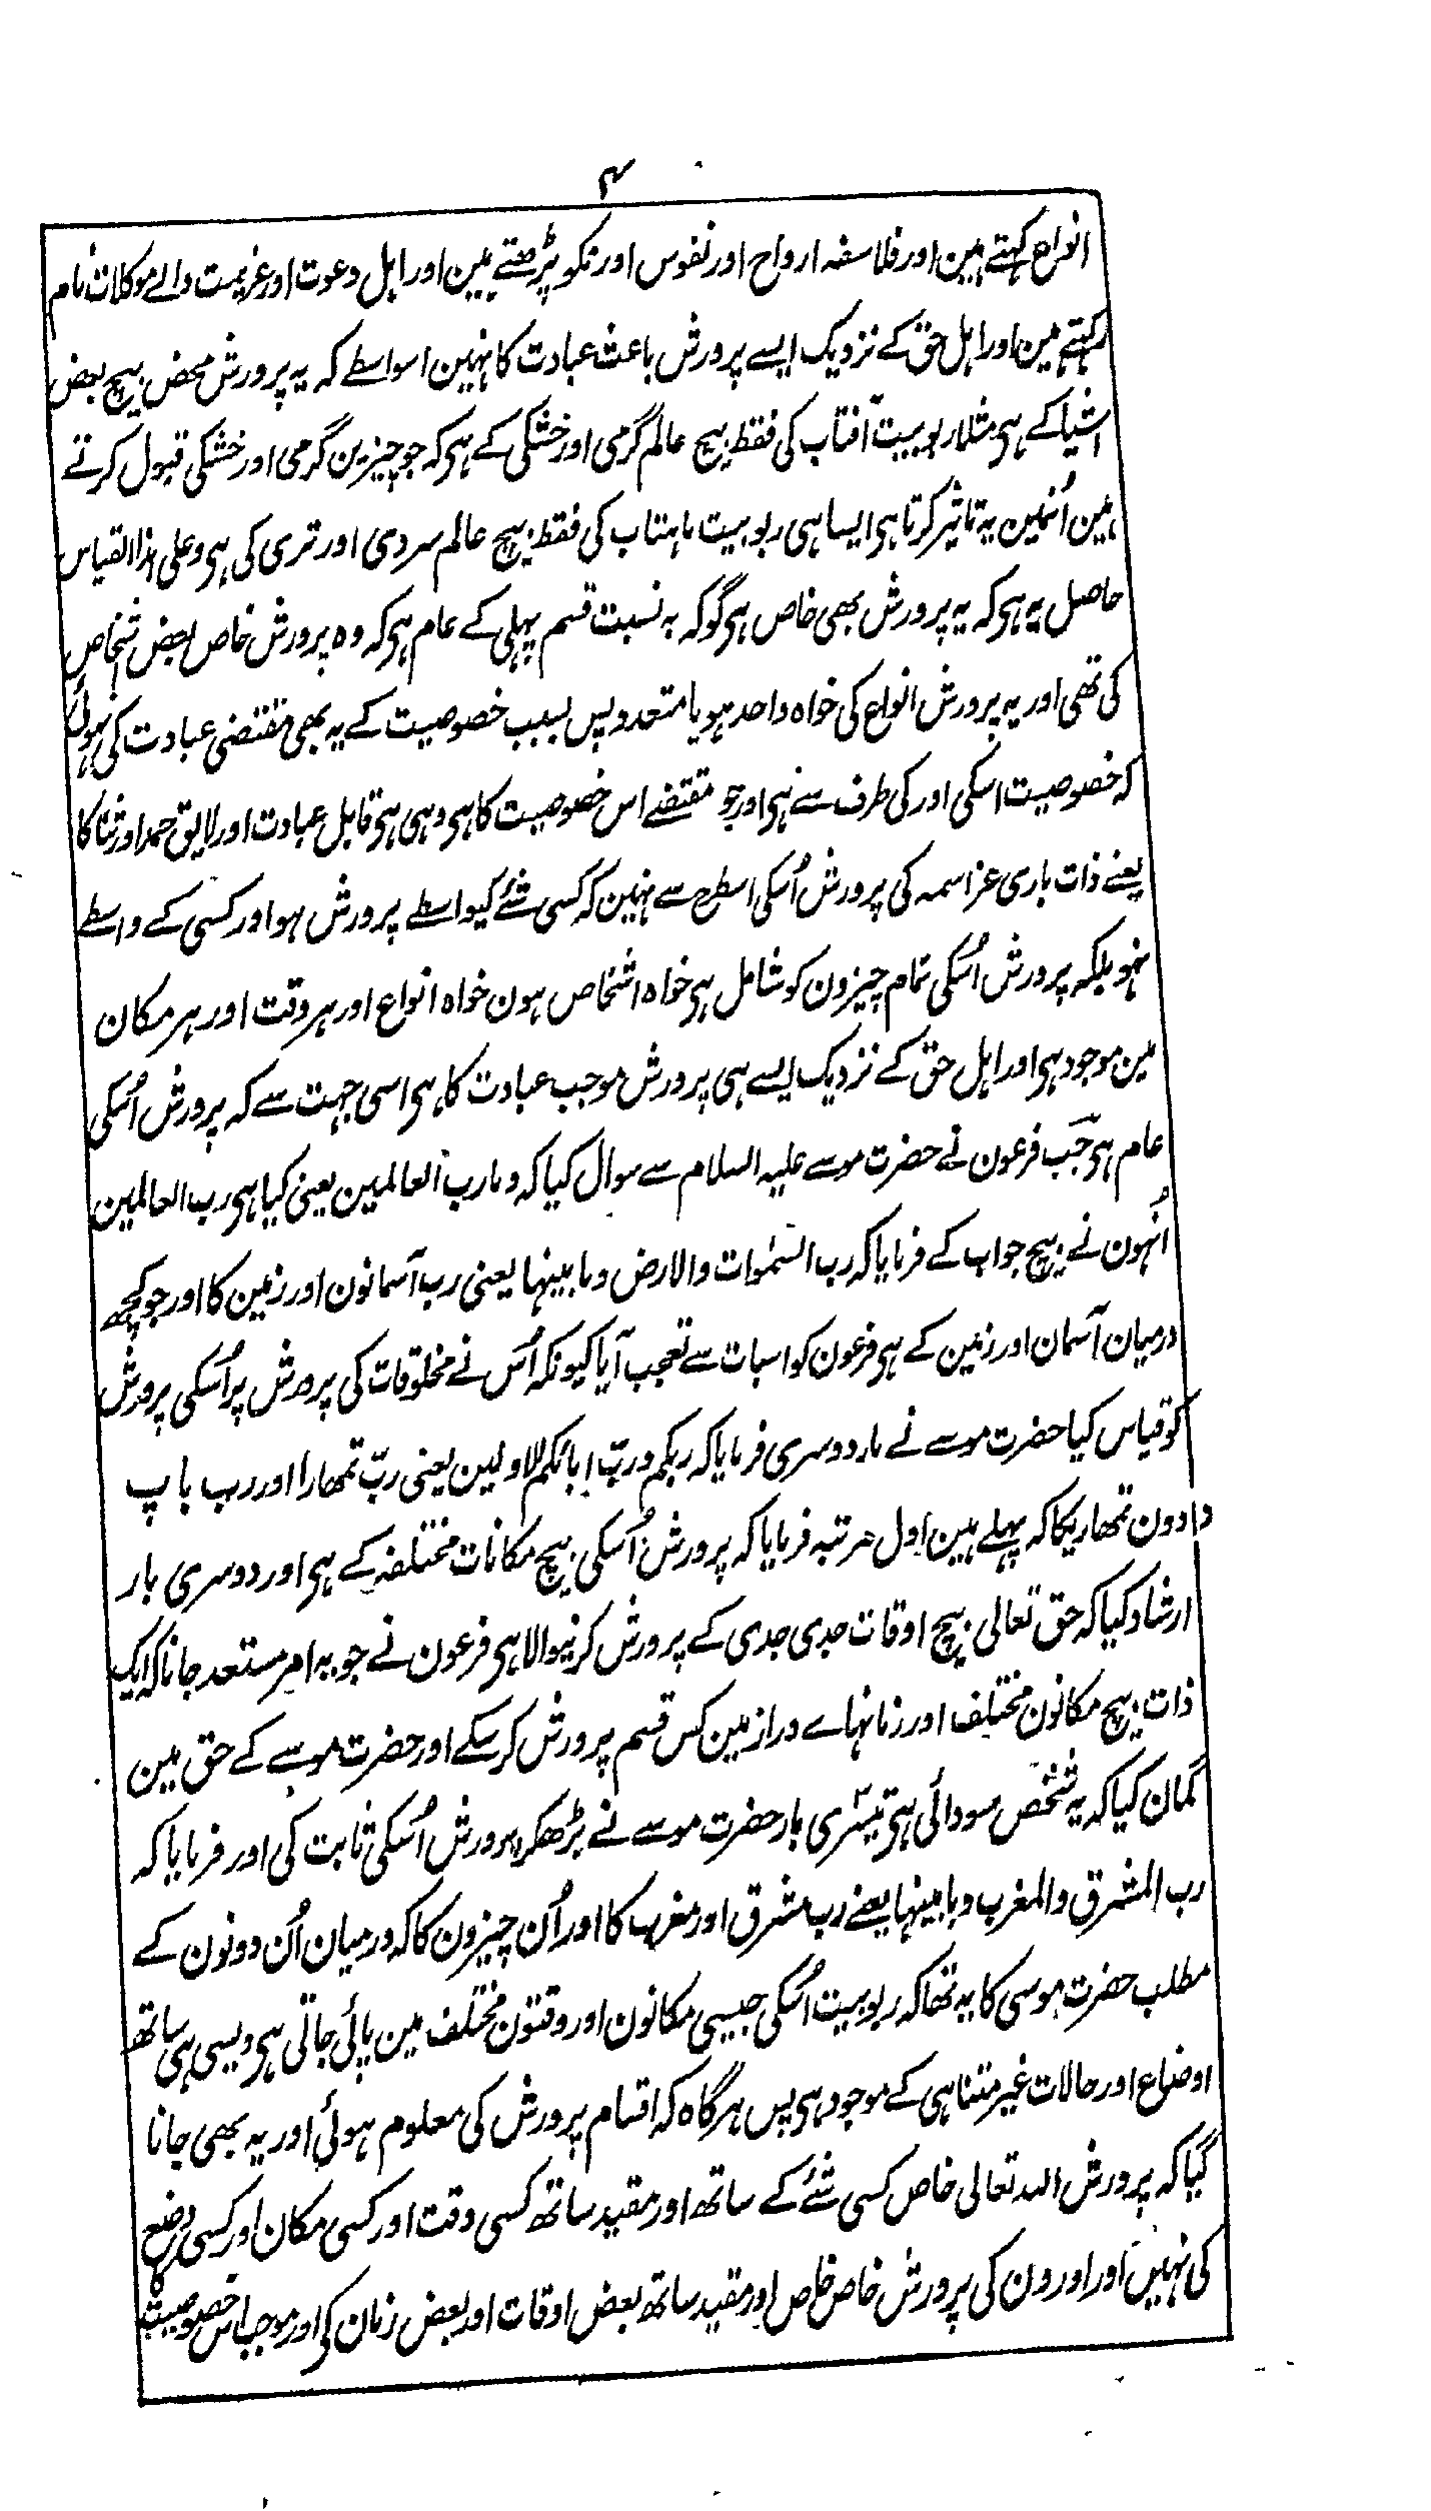 ۴
انواع کہتے ہین اور فلاسفہ ارواح اور نفوس اور نکو پڑھتے ہین اور اہل دعوت اور عزیمت والے موکلات نام
رکہتے ہین اور اہل حق کے نزدیک ایسے پرورش باعث عبادت کا نہین اسواسطے کہ یہ پرورش محض بیچ بعض
اشیا کے ہی مثلا ربوبیت آفتاب کی فقط بیچ عالم گرمی اور خشکی کے ہی کہ جو چیزین گرمی اور خشکی قبول کرتے
ہین اُنمین یہ تاثیر کرتا ہی ایسا ہی ربوبیت ماہتاب کی فقط بیچ عالم سردی اور تری کی ہی وعلی ہذا القیاس
حاصل یہ ہی کہ یہ پرورش بھی خاص ہی گو کہ بہ نسبت قسم پہلی کے عام ہی کہ وہ پرورش خاص بعض اشخاص
کی تھی اور یہ پرورش انواع کی خواہ واحد ہو یا متعدد پس بسبب خصوصیت کے یہ بھی مقتضی عبادت کی نہوئی
کہ خصوصیت اسکی اور کی طرف سے ہی اور جو مقتضے اس خصوصیت کا ہی وہی ہی قابل عبادت اور لایق حمد اور ثنا کا
یعنے ذات باری عز اسمہ کی پرورش اُسکی اسطرح سے نہین کہ کسی شئے کیواسطے پرورش ہو اور کسی کے واسطے
نہو بلکہ پرورش اُسکی تمام چیزون کو شامل ہی خواہ اشخاص ہون خواہ انواع اور ہر وقت اور ہر مکان
مین موجود ہی اور اہل حق کے نزدیک ایسے ہی پرورش موجب عبادت کا ہی اسی جہت سے کہ پرورش اُسکی
عام ہی جب فرعون نے حضرت موسے علیہ السلام سے سوال کیا کہ وما رب العالمین یعنی کیا ہی رب العالمین
اُنہون نے بیچ جواب کے فرمایا کہ رب السمٰوات والارض وما بینہما یعنی رب آسمانون اور زمین کا اور جو کچھ
درمیان آسمان اور زمین کے ہی فرعون کو اسبات سے تعجب آیا کیونکہ اُس نے مخلوقات کی پرورش پر اُسکی پرورش
کو قیاس کیا حضرت موسے نے بار دوسری فرمایا کہ ربکم وربّ ابائکم الاولین یعنی ربّ تمھارا اور رب باپ
دادون تمھاریکا کہ پہلے ہین اول مرتبہ فرمایا کہ پرورش اُسکی بیچ مکانات مختلفہ کے ہی اور دوسری بار
ارشاد کیا کہ حق تعالی بیچ اوقات جدی جدی کے پرورش کرنیوالا ہی فرعون نے جو یہ امر مستعد جانا کہ ایک
ذات بیچ مکانون مختلف اور زمانہاے دراز مین کس قسم پرورش کرسکے اور حضرت موسے کے حق مین
گمان کیا کہ یہ شخص سودائی ہی تیسری بار حضرت موسے نے بڑھکر پرورش اُسکی ثابت کی اور فرمایا کہ
رب المشرق والمغرب وما بینہما یعنے رب مشرق اور مغرب کا اور اُن چیزون کا کہ درمیان اُن دونون کے
مطلب حضرت موسی کا یہ تھا کہ ربوبیت اُسکی جیسی مکانون اور وقتون مختلف مین پائی جاتی ہی ویسی ہی ساتھ
اوضاع اور حالات غیر متناہی کے موجود ہی پس ہرگاہ کہ اقسام پرورش کی معلوم ہوئی اور یہ بھی جانا
گیا کہ پرورش اللہ تعالی خاص کسی شئے کے ساتھ اور مقید ساتھ کسی وقت اور کسی مکان اور کسی وضع
کی نہین اور اورون کی پرورش خاص خاص اور مقید ساتھ بعض اوقات اور بعض زمان کی اور موجب اس خصوصیت کا